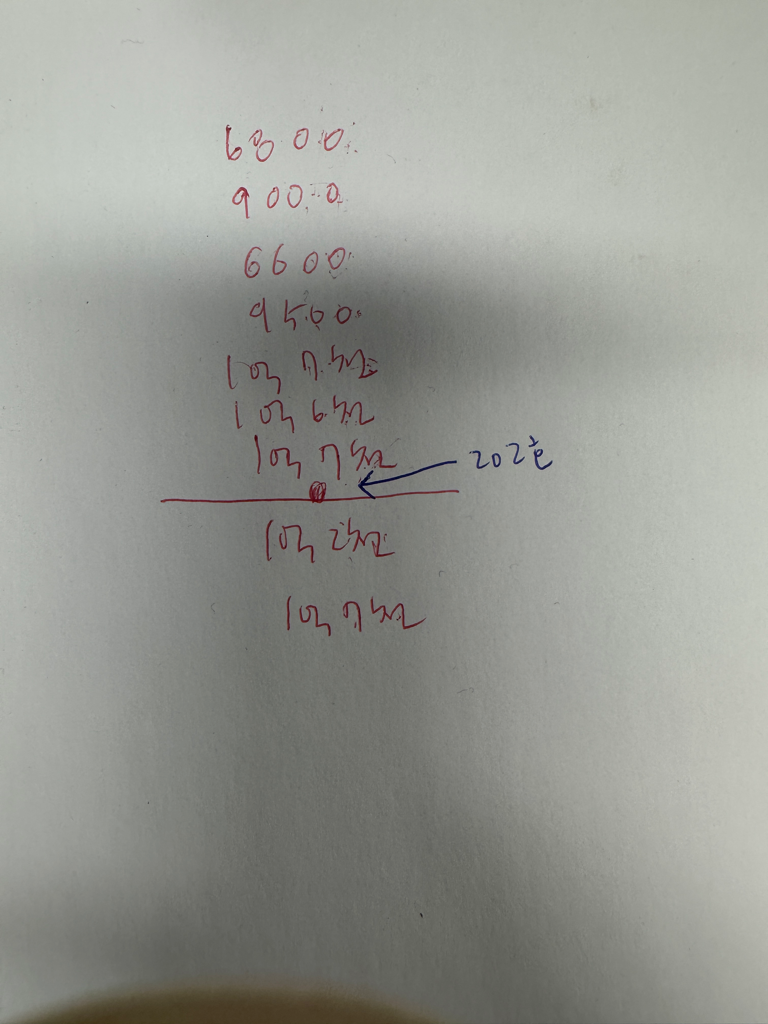 6800
9000
6600
9500
1억 7천
1억 6천
1억 7천
202호
1억 2천
1억 7천